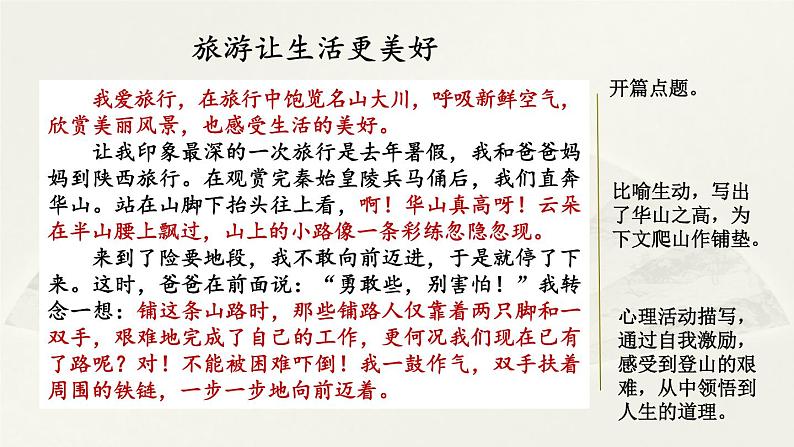 旅游让生活更美好
我爱旅行，在旅行中饱览名山大川，呼吸新鲜空气，
欣赏美丽风景，也感受生活的美好。
让我印象最深的一次旅行是去年暑假，我和爸爸妈
妈到陕西旅行。在观赏完秦始皇陵兵马俑后，我们直奔
华山。站在山脚下抬头往上看，啊！华山真高呀！云朵
在半山腰上飘过，山上的小路像一条彩练忽隐忽现。
来到了险要地段，我不敢向前迈进，于是就停了下
来。这时，爸爸在前面说：“勇敢些，别害怕！”我转
念一想：铺这条山路时，那些铺路人仅靠着两只脚和一
双手，艰难地完成了自己的工作，更何况我们现在已有
了路呢？对！不能被困难吓倒！我一鼓作气，双手扶着
周围的铁链，一步一步地向前迈着。
开篇点题。
比喻生动，写出
了华山之高，为
下文爬山作铺垫。
心理活动描写，
通过自我激励，
感受到登山的艰
难，从中领悟到
人生的道理。